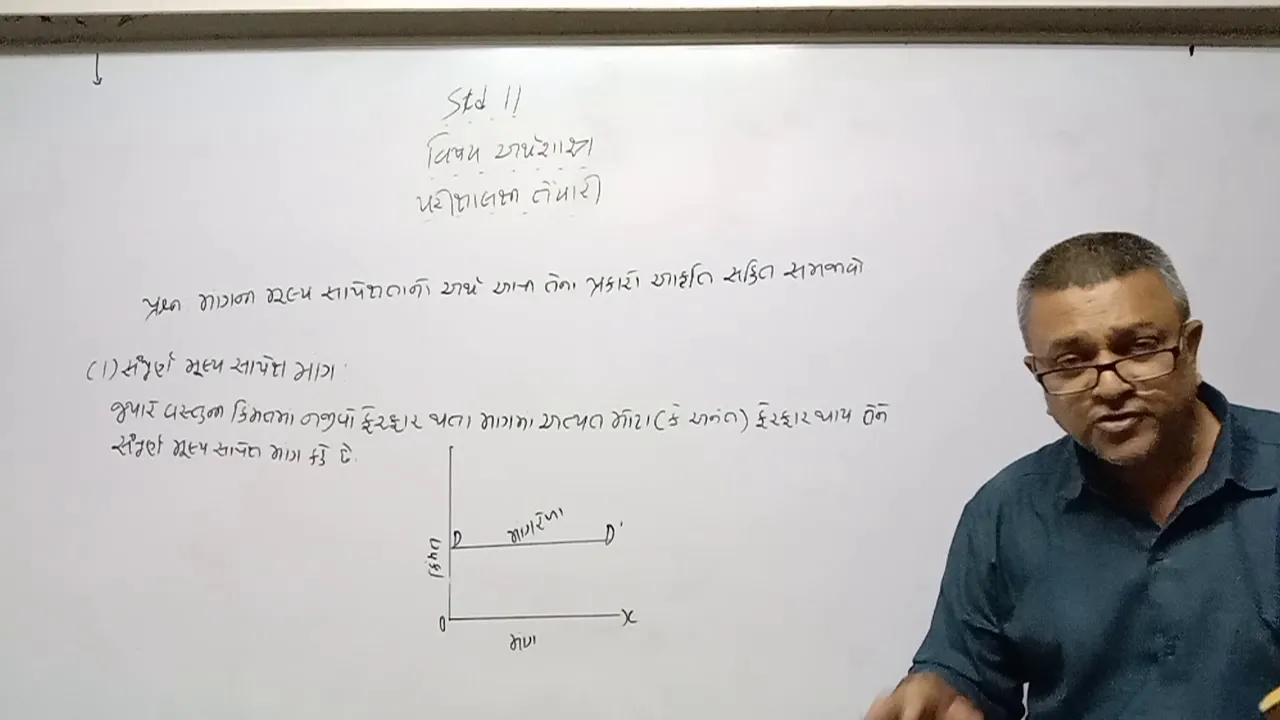 Std 11
વિષય અર્થશાસ્ત્ર
પરીક્ષાલક્ષી તૈયારી
પ્રશ્ન માંગની મૂલ્ય સાપેક્ષતાનો અર્થ આપી તેના પ્રકારો આકૃતિ સહિત સમજાવો
(1) સંપૂર્ણ મૂલ્ય સાપેક્ષ માંગ:
જ્યારે વસ્તુની કિંમતમાં નજીવો ફેરફાર થતા માંગમાં અત્યંત મોટા (કે અનંત) ફેરફાર થાય તેને
સંપૂર્ણ મૂલ્ય સાપેક્ષ માંગ કહે છે.
માંગરેખા
D D'
કિંમત
O X
માંગ